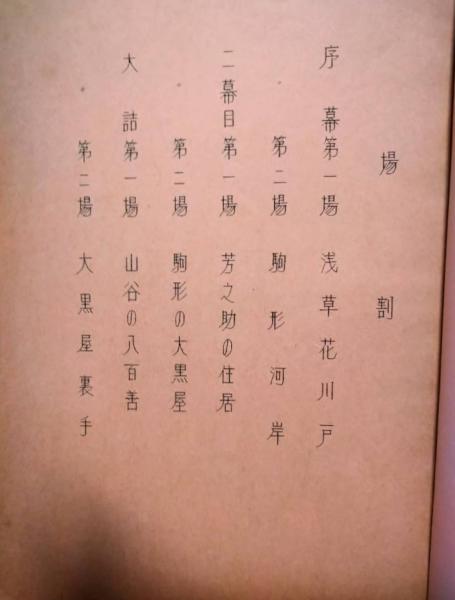 場割
序幕第一場 浅草花川戸
〃 第二場 駒形河岸
二幕目第一場 芳之助の住居
〃 第二場 駒形の大黒屋
大詰第一場 山谷の八百善
第二場 大黒屋裏手